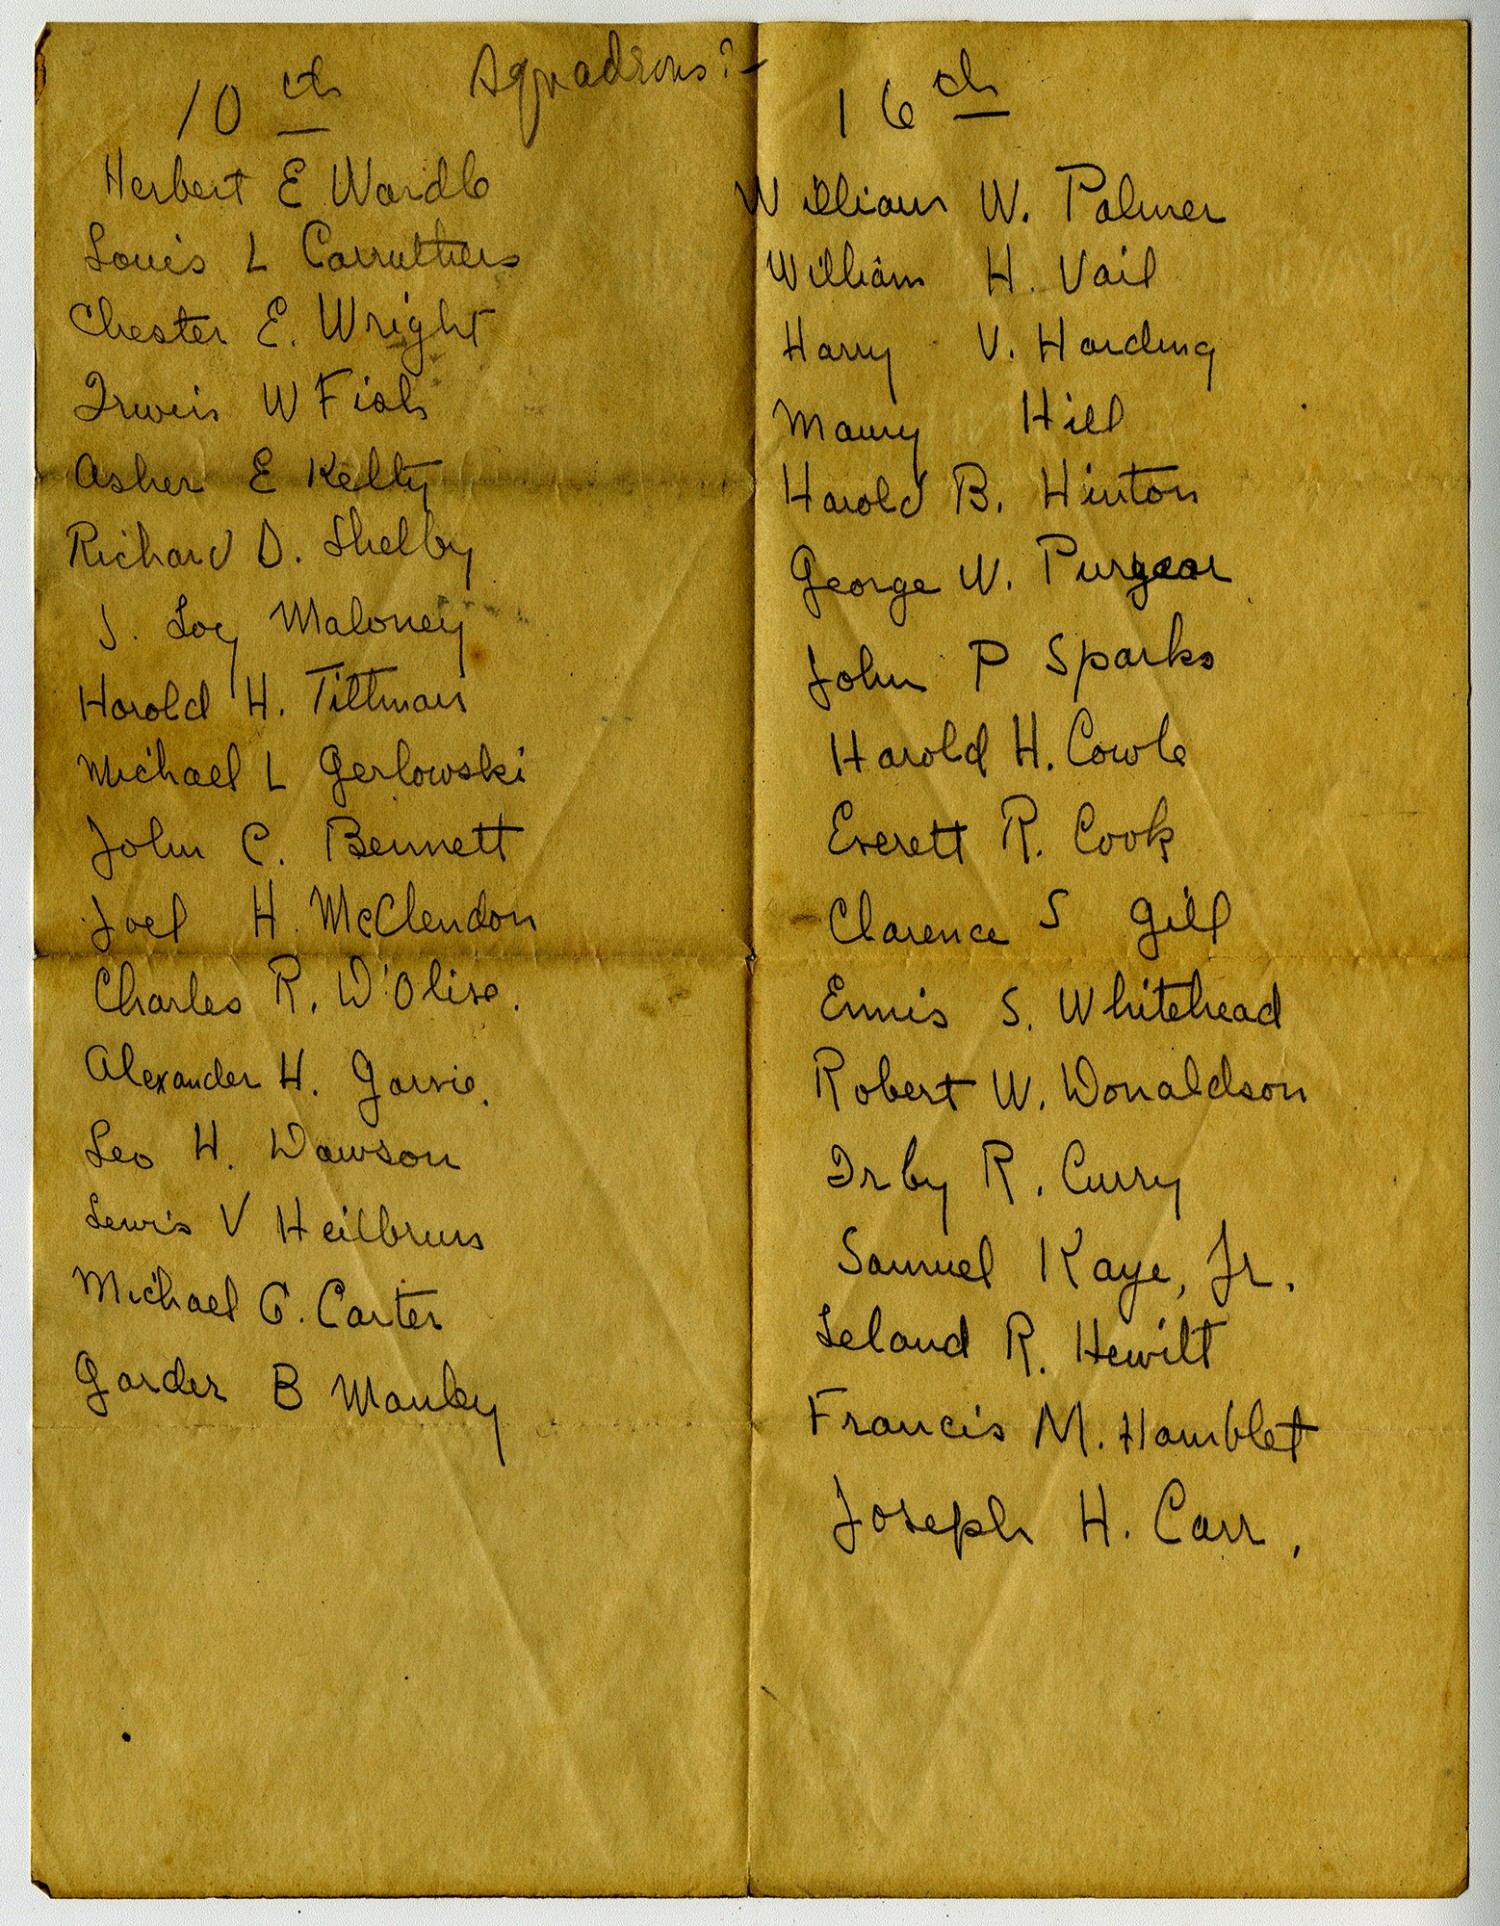 Squadrons?-
10th
Herbert E Wardle
Louis L Carruthers
Chester E. Wright
Irwin W Fish
Asher E Kelty
Richard D. Shelby
J. Loy Maloney
Harold H. Tittman
Michael L Gerlowski
John C. Bennett
Joel H. McClendon
Charles R. D'Olive.
Alexander H. Garvie.
Leo H. Dawson
Lewis V Heilbrun
Michael G. Carter
Garder B Manley
16th
William W. Palmer
William H. Vail
Harry V. Harding
Maury Hill
Harold B. Hinton
George W. Puryear
John P Sparks
Harold H. Cowle
Everett R. Cook
Clarence S Gill
Ennis S. Whitehead
Robert W. Donaldson
Irby R. Curry
Samuel Kaye, Jr.
Leland R. Hewitt
Francis M. Hamblet
Joseph H. Carr,